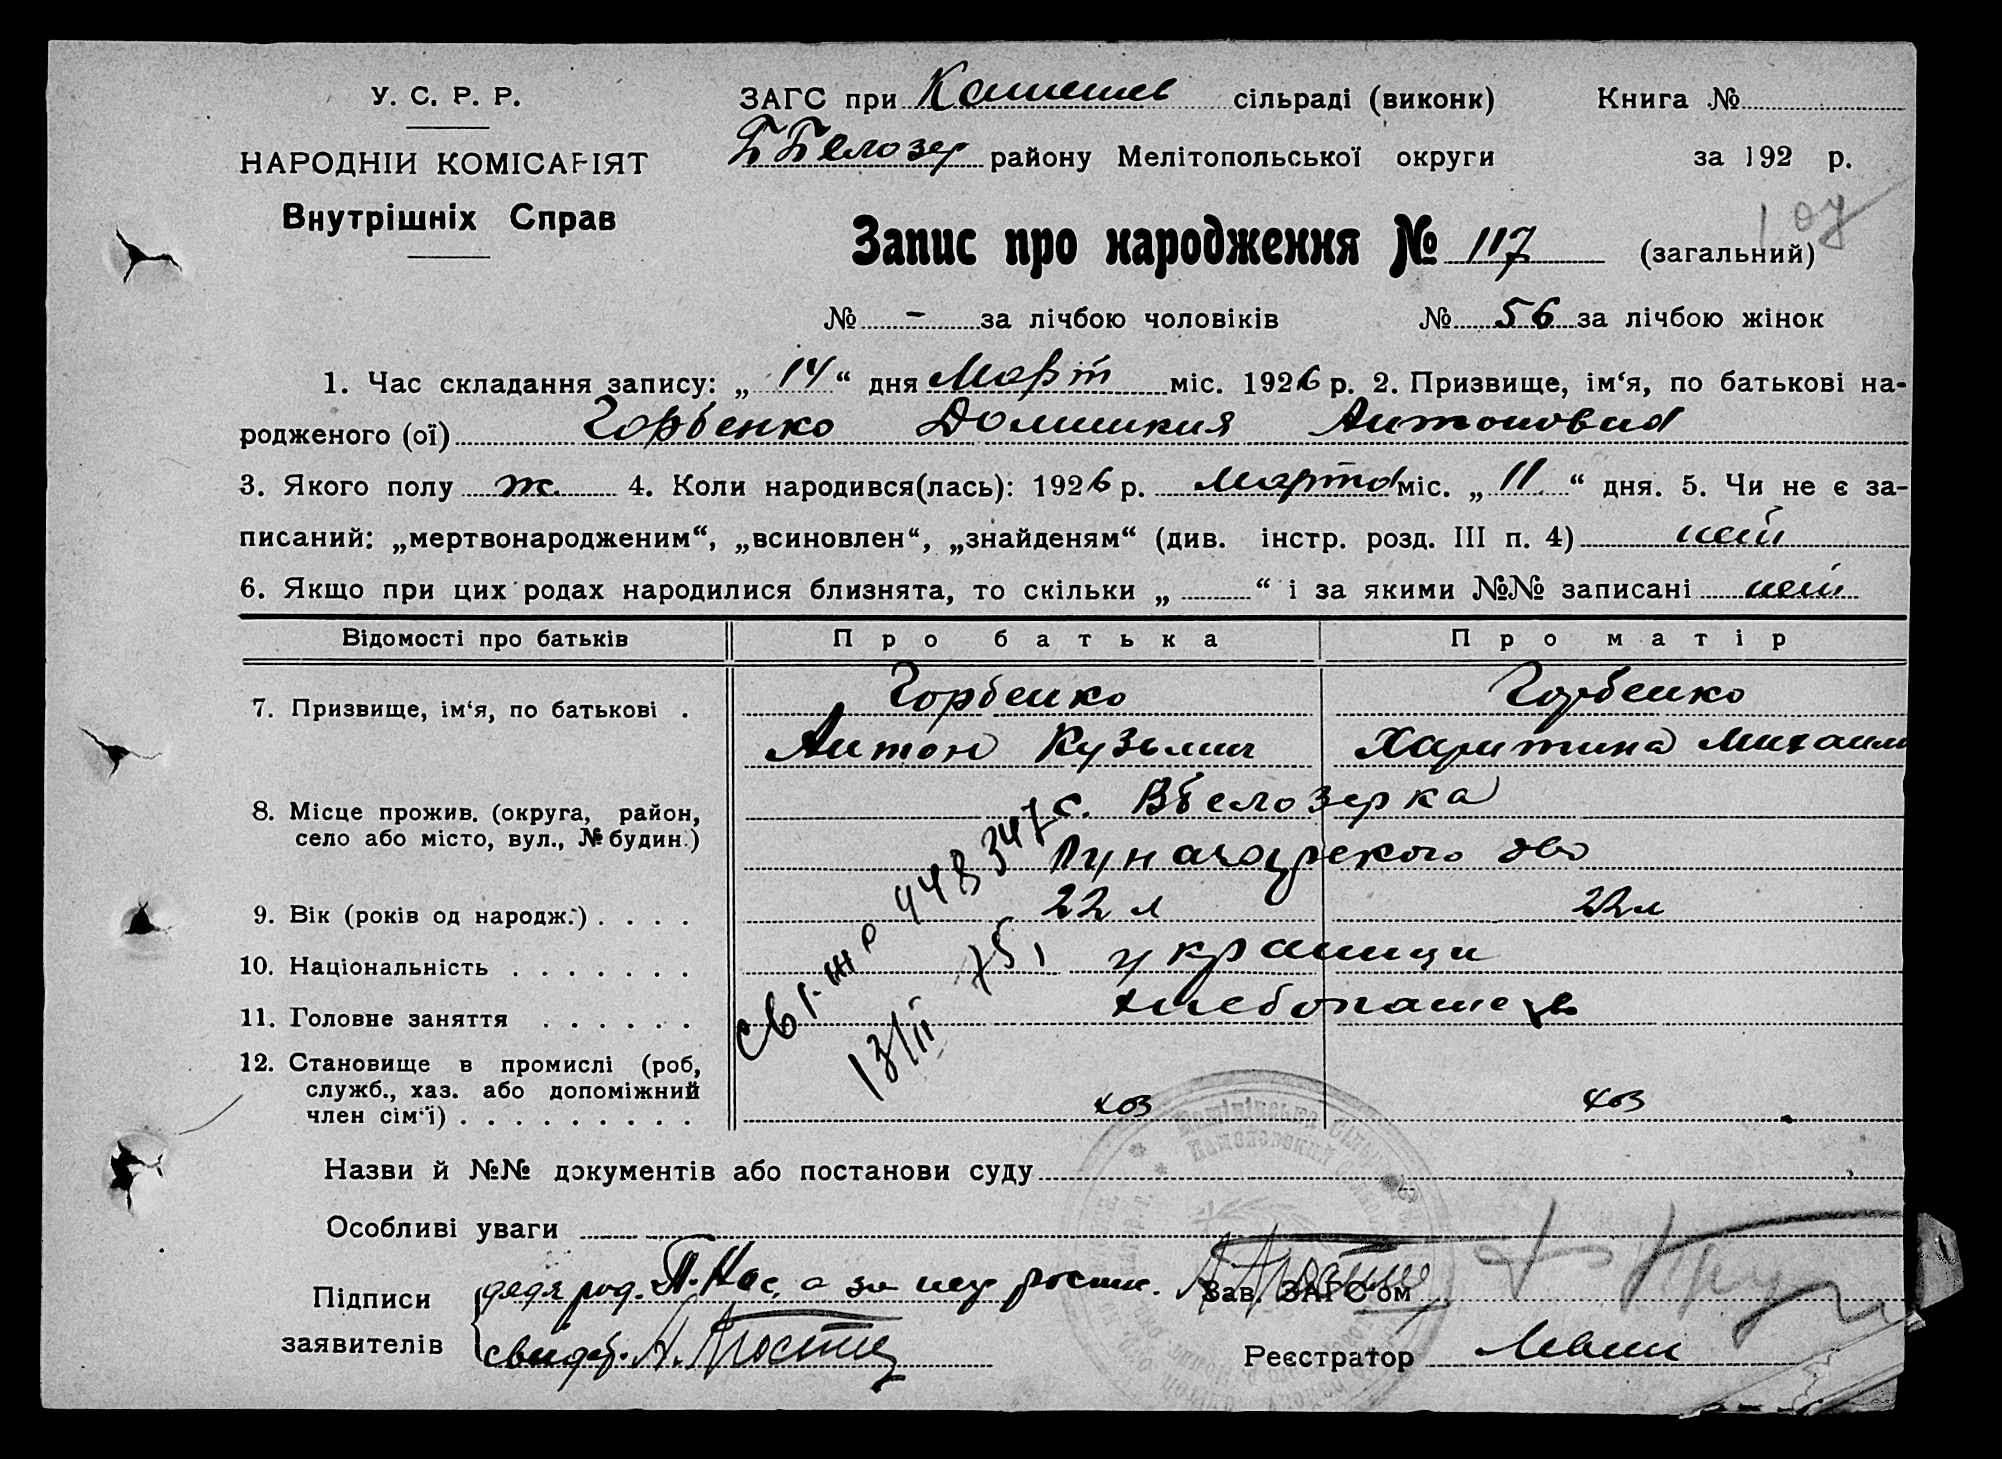 У. С. Р. Р.
НАРОДНІЙ КОМІСАРІЯТ
Внутрішніх Справ
ЗАГС при сільраді (виконк) Книга №
Б Белозер району Мелітопольської округи за 192 р.
107
Запис про народження № 117 (загальний)
№ - за лічбою чоловіків № 56 за лічбою жінок
1. Час складання запису: „ 14 “ дня Март міс. 1926 р. 2. Призвище, ім‘я, по батькові на-
родженого (ої) Горбенко Домникия Антоновна
3. Якого полу ж. 4. Коли народився(лась): 1926 р. марта міс. „ 11 “ дня. 5. Чи не є за-
писаний: „мертвонародженим“, „всиновлен“, „знайденям“ (див. інстр. розд. III п. 4) нет
6. Якщо при цих родах народилися близнята, то скільки „ “ і за якими №№ записані нет
Відомості про батьків Про батька Про матір
7. Призвище, ім‘я, по батькові . Горбенко Горбенко
Антон Кузьмич Харитина Михаил
8. Місце прожив. (округа, район, с. Вбелозерка
село або місто, вул., № будин.) Луначарского
9. Вік (років од народж.) . . . . 22 л 22 л
10. Національність . . . . . . . украинци
11. Головне заняття . . . . . . хлебопашец
12. Становище в промислі (роб,
служб., хаз. або допоміжний
член сім‘ї) . . . . . . . . . хоз хоз
448347
13/II 75,
Назви й №№ документів або постанови суду
Особливі уваги
Підписи дедя род. П. Нос, а за Зав. ЗАГС‘ом
заявителів Реєстратор